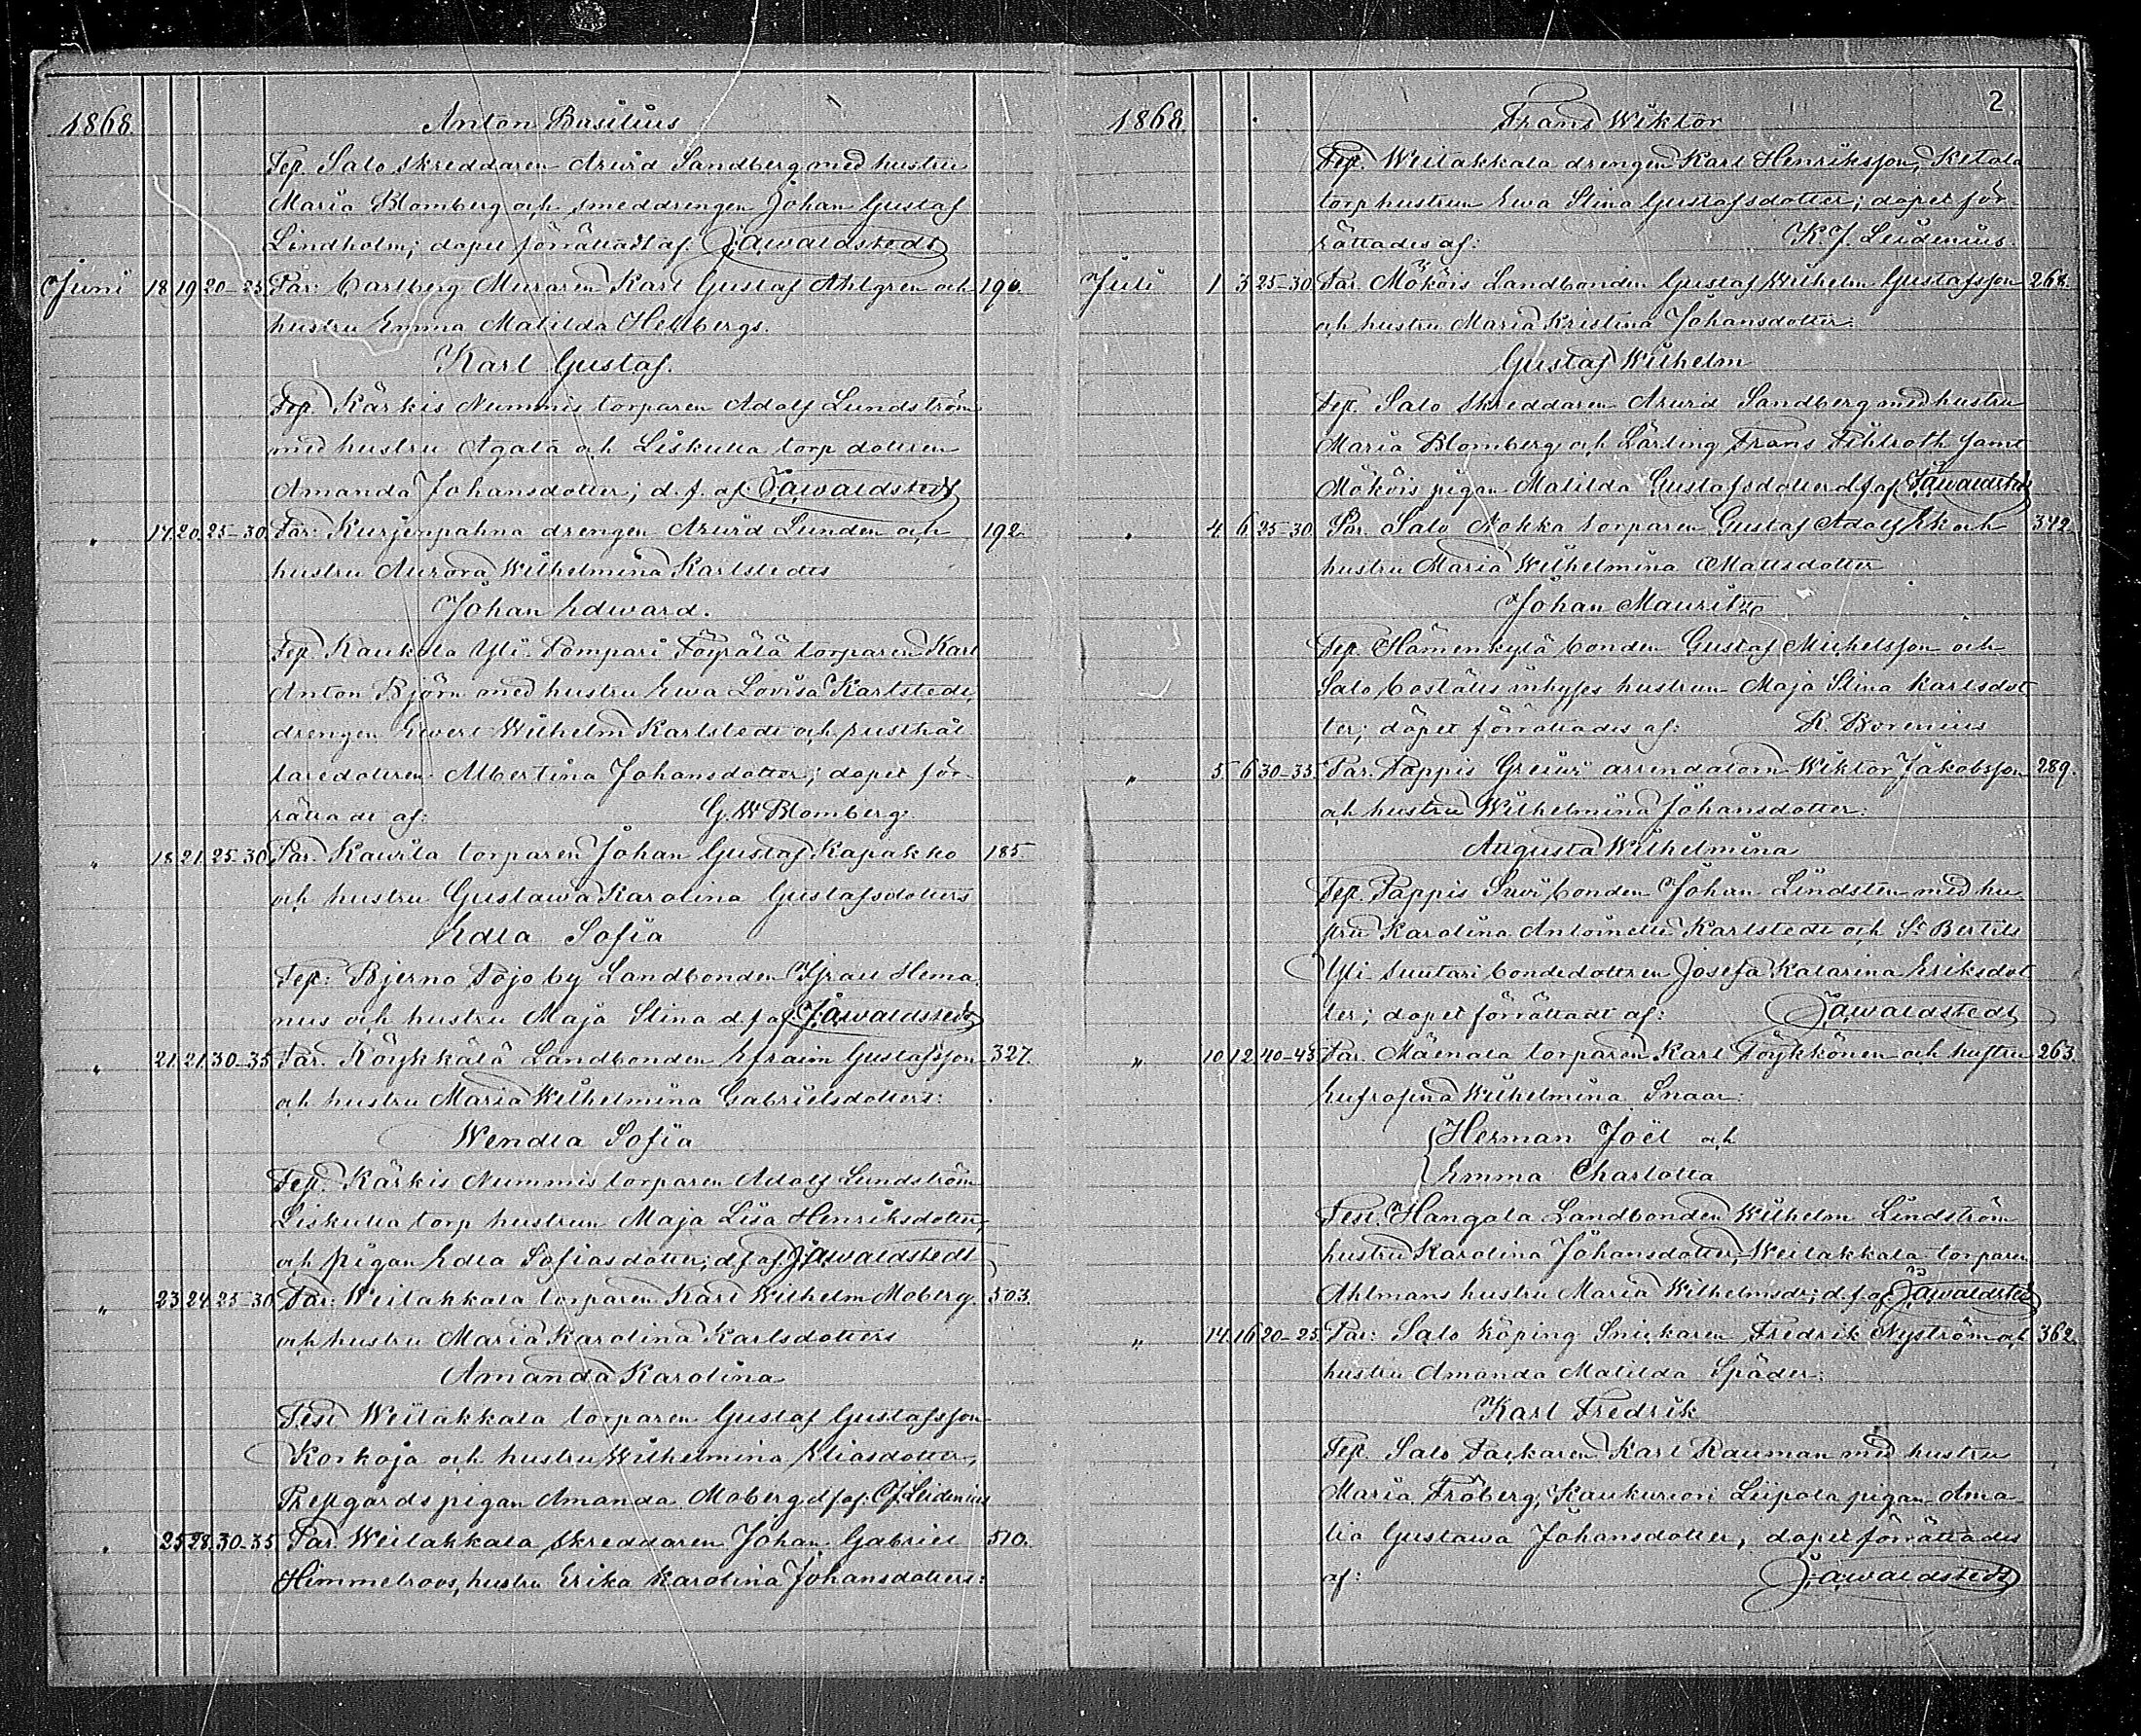 1868. Anton Basilius
Test. Salo skreddaren Arvid Sandberg med hustru
Maria Blomberg och smeddrengen Johan Gustaf
Lindholm; dopet förrättadt af: J.A.Waldstedt
Juni 18 19 20-25 Par: Carlberg Muraren Karl Gustaf Ahlgren och 190.
hustru Emma Matilda Hellbergs.
Karl Gustaf.
Test. Kärkis Nummis torparen Adolf Lundström
med hustru Agata och Liskulla torp dottren
Amanda Johansdotter; d.f. af J.A.Waldstedt
" 17. 20. 25-30. Par: Kurjenpahna drengen Arvid Lunden och 192.
hustru Aurora Wilhelmina Karlstedts
Johan Edward.
Test. Kaukola Yli-Pompari Töyrälä torparen Karl
Anton Björn med hustru Ewa Lovisa Karlstedt,
drengen Evert Wilhelm Karlstedt och rusthål
laredottren Albertina Johansdotter; dopet för
rättadt af: G.W Blomberg.
" 18. 21. 25-30 Par. Kavila torparen Johan Gustaf Kapakko 185.
och hustru Gustava Karolina Gustafsdotters
Edla Sofia
Test: Bjerno Pojo by Landbonden Israel Hema
nus och hustru Maja Stina d.f af J.A.Waldstedt
" 21. 21. 30-35 Par. Röykkälä Landbonden Efraim Gustafsson 327.
och hustru Maria Wilhelmina Gabrielsdotters:
Wendla Sofia
Test. Kärkis Nummis torparen Adolf Lundström
Liskulla torp hustrun Maja Lisa Henriksdotter,
och pigan Edla Sofiasdotter; d.f af. J.A.Waldstedt
" 23. 24. 25-30 Par: Veitakkala torparen Karl Wilhelm Moberg 503.
och hustru Maria Karolina Karlsdotters
Amanda Karolina
Test Weitakkala torparen Gustaf Gustafsson
Korkoja och hustru Wilhelmina Eliasdotter,
Prestgårds pigan Amanda Moberg d.f af: Leidenius
" 25 28. 30-35 Par. Weitakkala skreddaren Johan Gabriel 510.
Himmelroos, hustru Erika Karolina Johansdotters:
2
1868. Frans Wiktor
Test. Weitakkala drengen Karl Henriksson, Ketola
torphustrun Ewa Stina Gustafsdotter; dopet för
rättades af: K.J. Leidenius.
Juli 1 3 25-30. Par. Mököis Landbonden Gustaf Wilhelm Gustafsson 268.
och hustru Maria Kristina Johansdotter.
Gustaf Wilhelm
Test. Salo skreddaren Arvid Sandberg med hustru
Maria Blomberg och Lärling Frans Fihlroth samt
Mökois pigan Matilda Gustafsdotter d.f af J.A.Waldstedt
" 4. 6. 25-30. Par. Salo Nokka torparen Gustaf Adolf Ek och 342.
hustru Maria Wilhelmina Mattsdotter
Johan Mauritz
Test. Hämenkylä bonden Gustaf Michelsson och
Salo boställs inhyses hustrun Maja Stina Karlsdot
ter; dopet förrättades af: R. Borenius
" 5 6 30-35. Par. Pappis Greivi arrendatorn Wiktor Jakobsson 289.
och hustru Wilhelmina Johansdotter:
Augusta Wilhelmina
Test. Pappis Suvi bonden Johan Lindsten med hu
stru Karolina Antoinette Karlstedt och St Bertils
Yli Suutari bondedottren Josefa Katarina Eriksdot
ter; dopet förrättadt af: J.A.Waldstedt
" 10. 12. 40-45. Par. Mäenala torparen Karl Töykkönen och hustru 263.
Eufrosina Wilhelmina Snaar:
Herman Joël och
Emma Charlotta
Test. Hangala Landbonden Wilhelm Lindström
hustru Karolina Johansdotter, Weitakkala torparen
Ahlmans hustru Maria Wilhelmsdr; d.f. af J.A.Waldstedt
" 14. 16. 20-25. Par: Salo köping Snickaren Fredrik Nyström och 362.
hustru Amanda Matilda Späder:
Karl Fredrik
Test. Salo Packaren Karl Rauman med hustru
Maria Fröberg, Kaukuriori Leipola pigan Ama
lia Gustava Johansdotter, dopet förrättades
af: J.A.Waldstedt